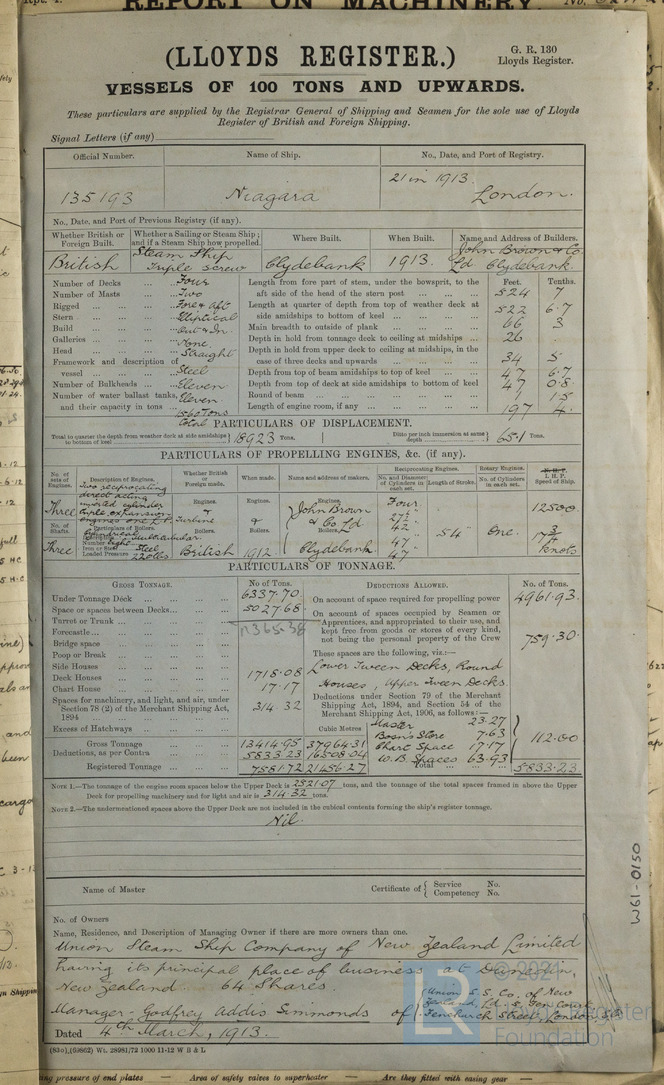 REPORT ON MACHINERY.
(LLOYDS REGISTER.)
G. R. 130
Lloyds Register.
VESSELS OF 100 TONS AND UPWARDS.
These particulars are supplied by the Registrar General of Shipping and Seamen for the sole use of Lloyds
Register of British and Foreign Shipping.
Signal Letters (if any)
Official Number. Name of Ship. No., Date, and Port of Registry.
135193 Niagara 21 in 1913. London.
No., Date, and Port of Previous Registry (if any).
Whether British or Foreign Built. Whether a Sailing or Steam Ship; and if a Steam Ship how propelled. Where Built. When Built. Name and Address of Builders.
British Steam Ship Triple Screw Clydebank 1913. John Brown & Co Ld Clydebank.
Number of Decks Four
Number of Masts Two
Rigged Fore & Aft
Stern Elliptical
Build
Galleries None
Head Straight
Framework and description of vessel Steel
Number of Bulkheads Eleven
Number of water ballast tanks, and their capacity in tons Eleven 1560 Tons total
Feet. Tenths.
Length from fore part of stem, under the bowsprit, to the aft side of the head of the stern post 524 7
Length at quarter of depth from top of weather deck at side amidships to bottom of keel 522 6.7
Main breadth to outside of plank 66 3
Depth in hold from tonnage deck to ceiling at midships 26
Depth in hold from upper deck to ceiling at midships, in the case of three decks and upwards 34 5
Depth from top of beam amidships to top of keel 47 6.7
Depth from top of deck at side amidships to bottom of keel 47 0.8
Round of beam 1 1.5
Length of engine room, if any 197 4.
PARTICULARS OF DISPLACEMENT.
Total to quarter the depth from weather deck at side amidships to bottom of keel 18923 Tons. Ditto per inch immersion at same depth 65.1 Tons.
PARTICULARS OF PROPELLING ENGINES, &c. (if any).
No. of sets of Engines. Description of Engines. Whether British or Foreign made. When made. Name and address of makers. Reciprocating Engines. Rotary Engines.
No. and Diameter of Cylinders in each set. Length of Stroke. No. of Cylinders in each set. I.H.P. Speed of Ship.
Three Two reciprocating direct acting inverted cylinder triple expansion engines one L.P. Turbine
Engines. & Boilers. Engines. & Boilers. Engines, John Brown & Co Ld Boilers, Clydebank
No. of Shafts. Three
Particulars of Boilers.
Number Eight
Iron or Steel Steel
Loaded Pressure 220 lbs
British 1912
Four 42 47 47 54" One. 12500 17¾ knots
PARTICULARS OF TONNAGE.
GROSS TONNAGE. No. of Tons.
Under Tonnage Deck 6337.70
Space or spaces between Decks 5027.68
Turret or Trunk 11365.38
Forecastle
Bridge space
Poop or Break
Side Houses
Deck Houses 1718.08
Chart House 17.17
Spaces for machinery, and light, and air, under Section 78 (2) of the Merchant Shipping Act, 1894 314.32
Excess of Hatchways
Cubic Metres
Gross Tonnage 13414.95 37964.31
Deductions, as per Contra 5833.23 16508.04
Registered Tonnage 7581.72 21456.27
DEDUCTIONS ALLOWED. No. of Tons.
On account of space required for propelling power 4961.93
On account of spaces occupied by Seamen or Apprentices, and appropriated to their use, and kept free from goods or stores of every kind, not being the personal property of the Crew 759.30
These spaces are the following, viz.:—
Lower Tween Decks, Round Houses, Upper Tween Decks
Deductions under Section 79 of the Merchant Shipping Act, 1894, and Section 54 of the Merchant Shipping Act, 1906, as follows:—
Master 23.27
Bosn's Store 7.63
Chart Space 17.17
W.B. Spaces 63.93
112.00
Total 5833.23
NOTE 1.—The tonnage of the engine room spaces below the Upper Deck is 2321.07 tons, and the tonnage of the total spaces framed in above the Upper
Deck for propelling machinery and for light and air is 314.32 tons.
NOTE 2.—The undermentioned spaces above the Upper Deck are not included in the cubical contents forming the ship's register tonnage.
Nil.
Name of Master Certificate of { Service No. Competency No.
No. of Owners
Name, Residence, and Description of Managing Owner if there are more owners than one.
Union Steam Ship Company of New Zealand Limited
having its principal place of business at Dunedin,
New Zealand. 64 Shares.
Manager - Godfrey Addis Simmonds of (Union S.S. Co. of New Zealand, Ld. Fenchurch Street, London
Dated 4th March, 1913.
(83o),(60862) Wt. 28981/72 1000 11-12 W B & L
W61-0150
© 2021
LR
Lloyd's Register
Foundation
ng pressure of end plates — Area of safety valves to superheater — Are they fitted with easing gear